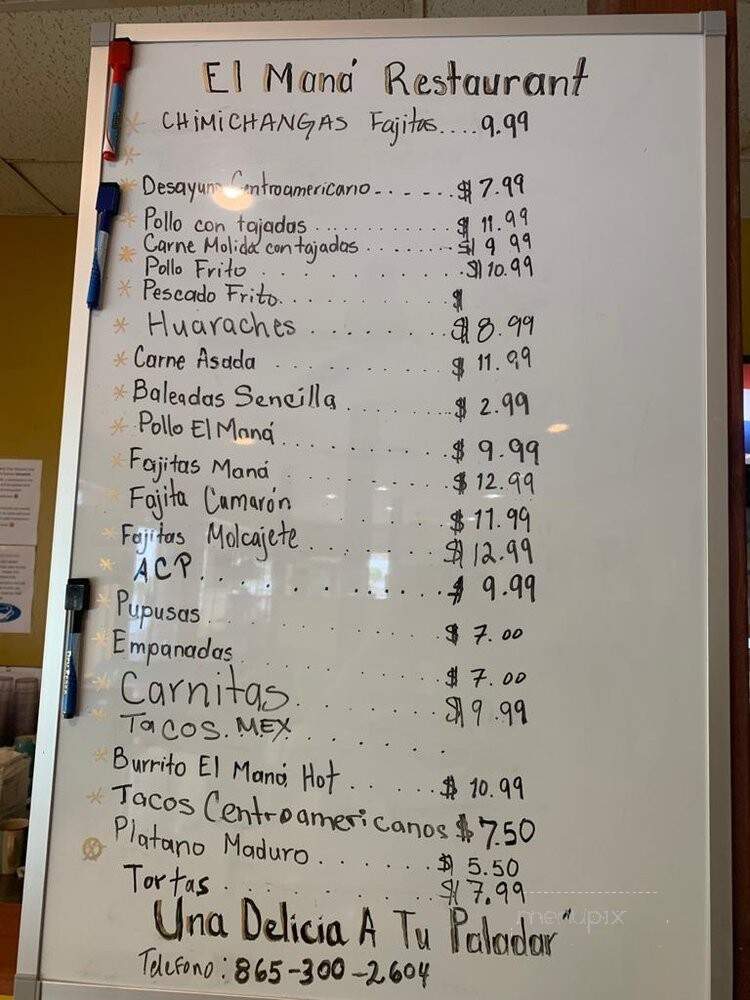 El Maná Restaurant
CHIMICHANGAS Fajitas....9.99
Desayuno Centroamericano- - . - - - .$ 7.99
Pollo con tajadas .................. $ 11.99
Carne Molida con tajadas ........- $ 9 99
Pollo Frito . . . . . . . . . . . $ 10.99
Pescado Frito. . . . . . . . . . $
Huaraches . . . . . . . . $ 8.99
Carne Asada . . . . . . . . . . $ 11.99
Baleadas Sencilla . . . . . . ... $ 2.99
Pollo El Maná . . . . . . . . . . $ 9.99
Fajitas Maná . . . . . . . . . . $ 12.99
Fajita Camarón . . . . . . . . $ 11.99
Fajitas Molcajete . . . . . . . . $ 12.99
ACP. . . . . . . . . . . . . $ 9.99
Pupusas . . . . . . . . . . $ 7.00
Empanadas . . . . . . . . . . $ 7.00
Carnitas. . . . . . . . . $ 9.99
Tacos. MEX . . . . . .
Burrito El Maná Hot . . . . . . $ 10.99
Tacos Centroamericanos $ 7.50
Platano Maduro . . . . . . . $ 5.50
Tortas . . . . . . . . . . . $ 7.99
Una Delicia A Tu Paladar"
Telefono: 865-300-2604
menupix